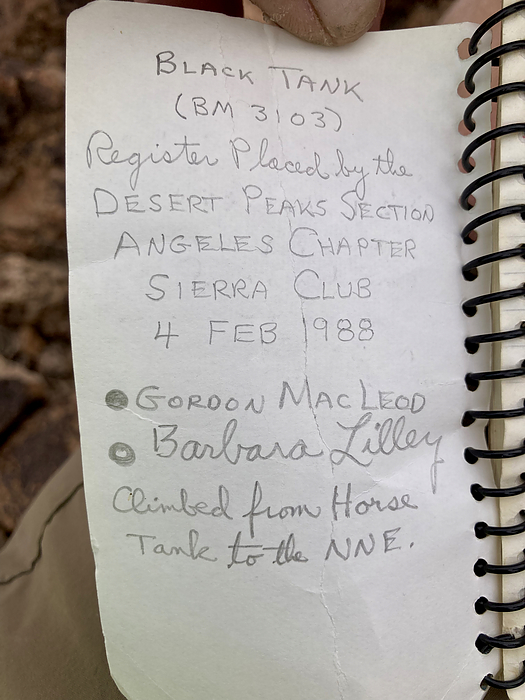 BLACK TANK
(BM 3103)
Register Placed by the
DESERT PEAKS SECTION
ANGELES CHAPTER
SIERRA CLUB
4 FEB 1988
GORDON MACLEOD
Barbara Lilley
Climbed from Horse
Tank to the NNE.